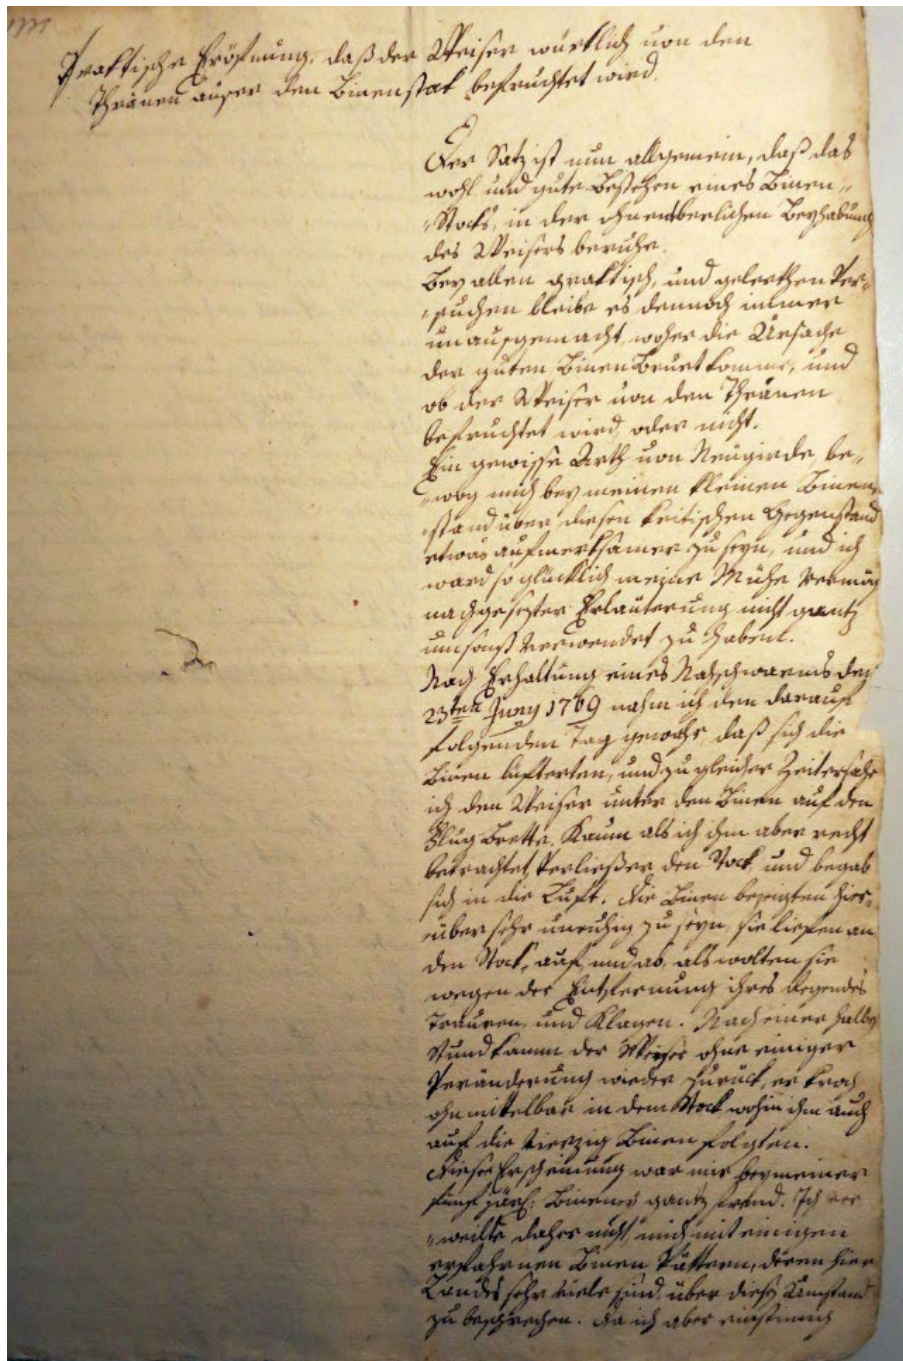 Praktische Eröfnung, daß der Weiser würklich von den
Thränen auser den Binenstok befruchtet wird.
Der Satz ist nun allgemein, daß das
wohl und gute Bestehen eines Binen„
„Stocks, in der ohnentberlichen Beyhabung
des Weisers beruhe.
Bey allen practisch, und gelerthen Ver„
„suchen bleibe es dennoch immer
unausgemacht, woher die Ursache
der guten Binen Bruet komme, und
ob der Weiser von den Thränen
befruchtet wird oder nicht.
Ein gewisse Arth von Neugirde be„
„wog mich bey meinen kleinen Binen„
stand über diesen kritischen Gegenstand
etwas aufmerksamer zu seyn, und ich
ward so glücklich meine Mühe vermög
nachgesezter Erläuterung nicht gantz
umsonst verwendet zu haben.
Nach Erhaltung eines Nachschwarms den
23ten Juny 1769 nahm ich den darauf
folgenden Tag gewahr, daß sich die
Binen lüfterten, und zu gleicher Zeit ersahe
ich den Weiser unter den Binen auf den
Flug Brette. Kaum als ich ihm aber recht
betrachtet, Verließ er den Stock, und begab
sich in die Luft. Die Binen bezeigten hier„
„über sehr unruhig zu seyn, sie liefen an
den Stock, auf und ab, als wolten sie
wegen der Entfernung ihres Regendes
Trauren, und Klagen. Nach einer halben
Stund kamm der Weiser ohne einiger
Veränderung wieder zurück, er kroch
ohnmittelbar in dem Stock wohin ihm auch
auf die vierzig Binen folgten.
Diese Erscheinung war mir bey meiner
fünf jähr: gantz fremd. Ich ver
„weilte daher nicht mich mit einigen
erfahrnen Binen Vättern, deren hier
Landes sehr viele sind über diesen Umstand
zu besprechen. Da ich aber einstimmig